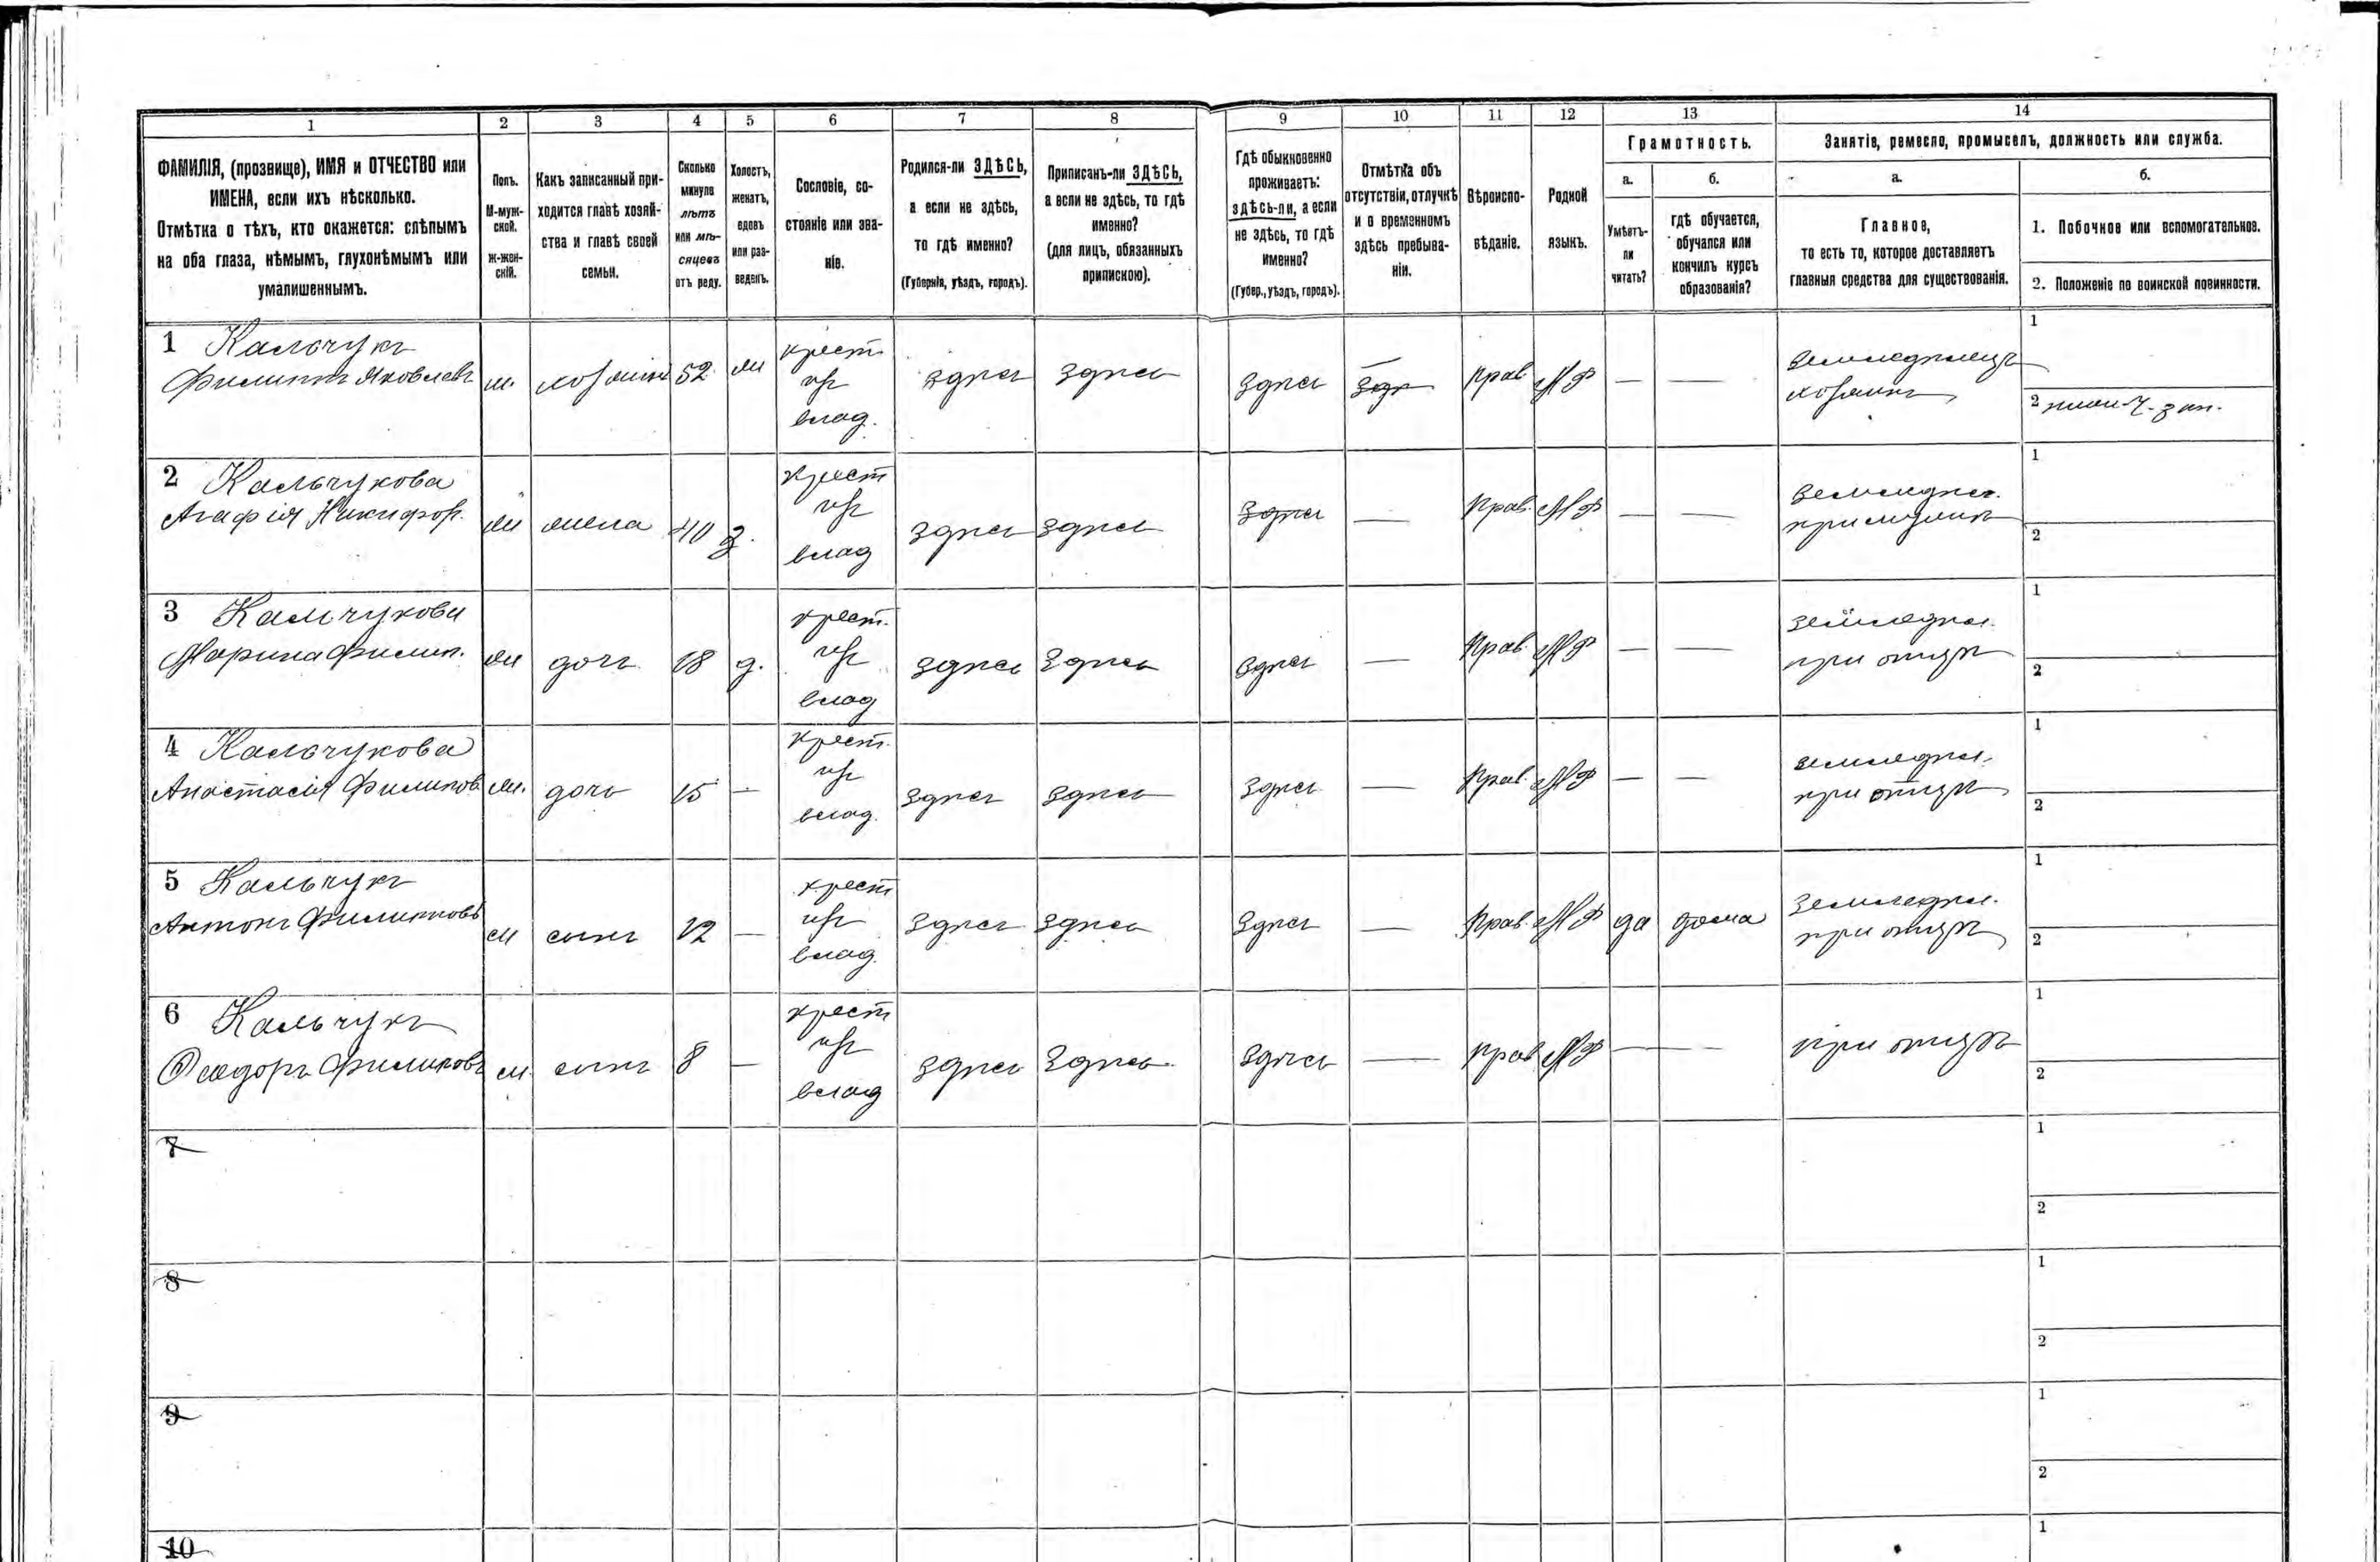 1
2
3
4
5
6
7
8
9
10
11
12
13
14
ФАМИЛІЯ, (прозвище), ИМЯ и ОТЧЕСТВО или
ИМЕНА, если ихъ нѣсколько.
Отмѣтка о тѣхъ, кто окажется: слѣпымъ
на оба глаза, нѣмымъ, глухонѣмымъ или
умалишеннымъ.
Полъ.
М-муж-
ской.
ж-жен-
скій.
Какъ записанный при-
ходится главѣ хозяй-
ства и главѣ своей
семьи.
Сколько
минуло
лѣтъ
или мѣ-
сяцевъ
отъ роду.
Холостъ,
женатъ,
вдовъ
или раз-
веденъ.
Сословіе, со-
стояніе или зва-
ніе.
Родился-ли ЗДѢСЬ,
а если не здѣсь,
то гдѣ именно?
(Губернія, уѣздъ, городъ).
Приписанъ-ли ЗДѢСЬ,
а если не здѣсь, то гдѣ
именно?
(для лицъ, обязанныхъ
припискою).
Гдѣ обыкновенно
проживаетъ:
здѣсь-ли, а если
не здѣсь, то гдѣ
именно?
(Губер., уѣздъ, городъ).
Отмѣтка объ
отсутствіи, отлучкѣ
и о временномъ
здѣсь пребыва-
ніи.
Вѣроиспо-
вѣданіе.
Родной
языкъ.
Грамотность.
а.
Умѣетъ-
ли
читать?
б.
гдѣ обучается,
обучался или
кончилъ курсъ
образованія?
Занятіе, ремесло, промыселъ, должность или служба.
а.
Главное,
то есть то, которое доставляетъ
главныя средства для существованія.
б.
1. Побочное или вспомогательное.
2. Положеніе по воинской повинности.
1 Кальчукъ
Филиппъ Яковлевъ
м. хозяинъ 52 ж
крест.
влад.
здѣсь здѣсь здѣсь
Прав М Р — —
земледѣлецъ
хозяинъ
1
2
2 Кальчукова
Агафія Никифор.
ж жена 40 з.
крест
влад
здѣсь здѣсь здѣсь — Прав. М Р — —
земледѣл.
при мужѣ
1
2
3 Кальчукова
Марина Филип.
ж дочь 18 д.
крест.
влад
здѣсь здѣсь здѣсь — Прав. М Р — —
земледѣл.
при отцѣ
1
2
4 Кальчукова
Анастасія Филипов
ж. дочь 15 —
крест.
влад.
здѣсь здѣсь здѣсь — Прав. М Р — —
земледѣл.
при отцѣ
1
2
5 Кальчукъ
Антонъ Филипповъ
м сынъ 12 —
крест
влад.
здѣсь здѣсь здѣсь — Прав. М Р да дома
земледѣл.
при отцѣ
1
2
6 Кальчукъ
Ѳеодоръ Филиповъ
м сынъ 8 —
крест
влад
здѣсь здѣсь здѣсь — Прав М Р — —
при отцѣ
1
2
7
1
2
8
1
2
9
1
2
10
1